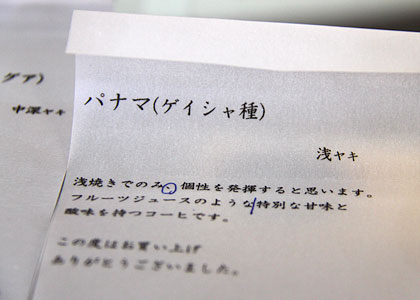 グア)
中深ヤキ
パナマ(ゲイシャ種)
浅ヤキ
浅焼きでのみ、個性を発揮すると思います。
フルーツジュースのような特別な甘味と
酸味を持つコーヒです。
この度はお買い上げ
ありがとうございました。